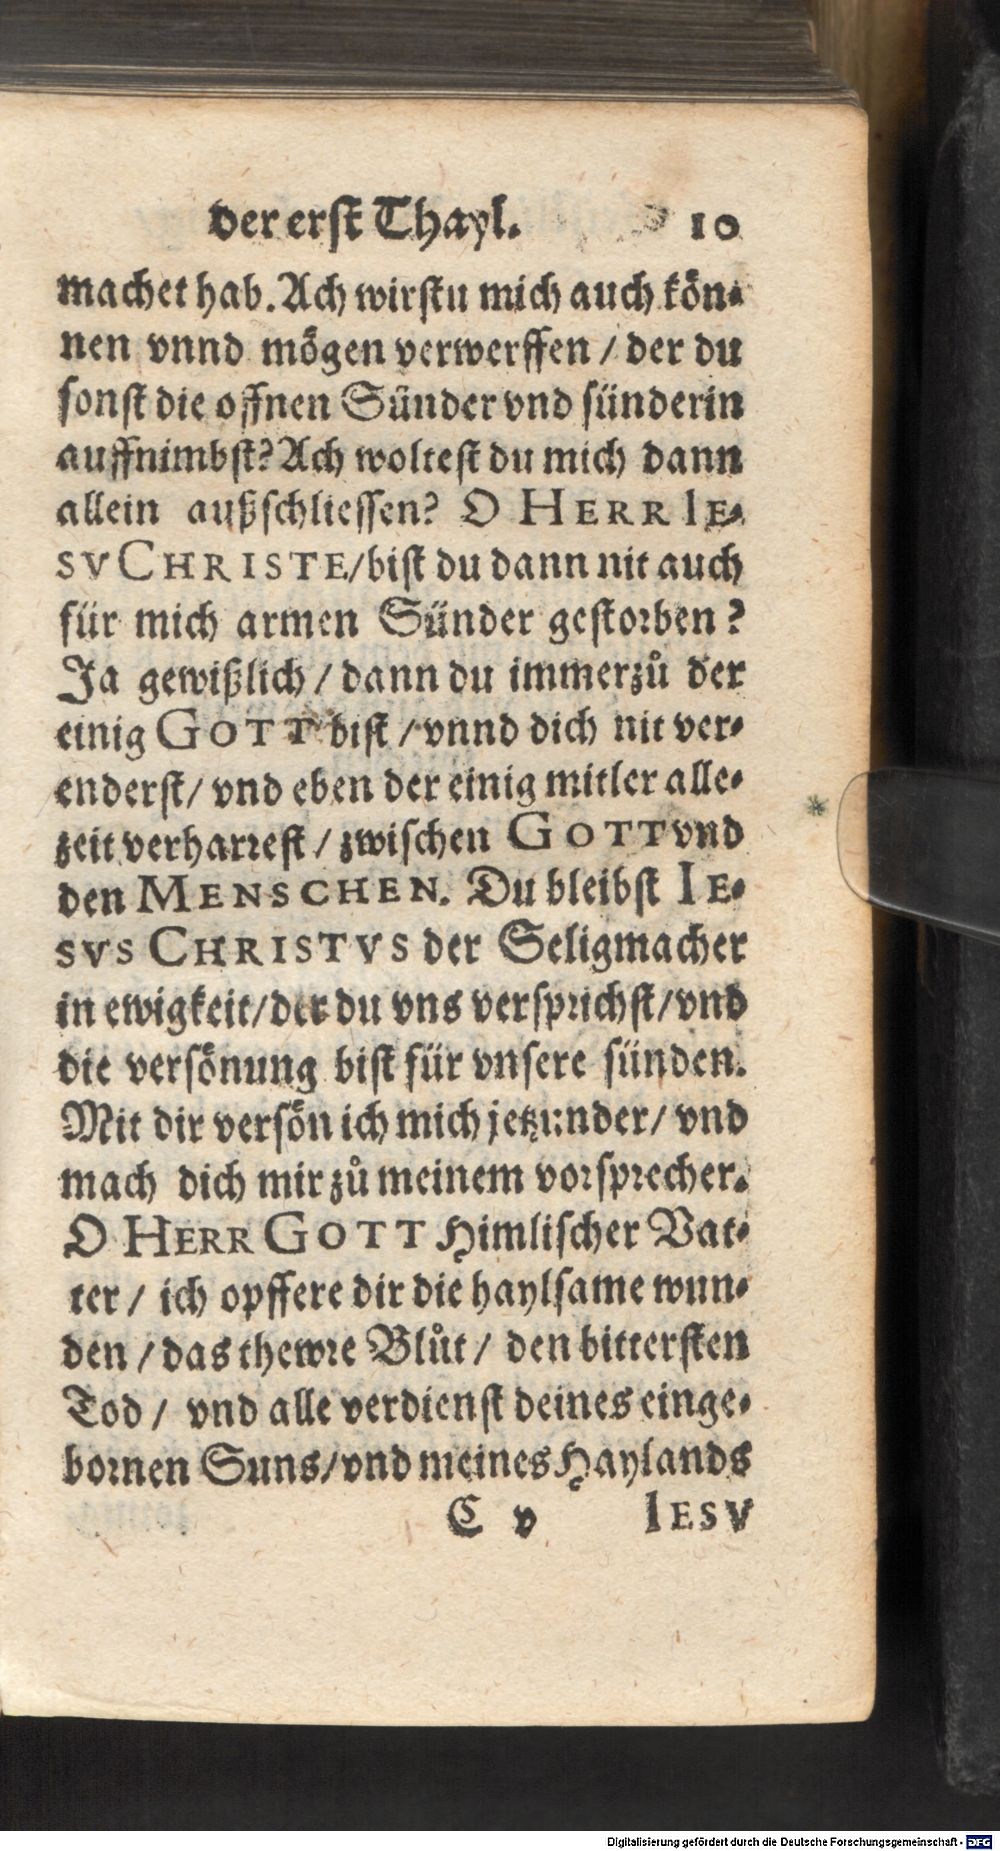 der erst Thayl. 10
machet hab. Ach wirstu mich auch kön-
nen vnnd mögen verwerffen / der du
sonst die offnen Sünder vnd sünderin
auffnimbst? Ach woltest du mich dann
allein außschliessen? O HERR IE-
SV CHRISTE/bist du dann nit auch
für mich armen Sünder gestorben?
Ja gewißlich / dann du immerzů der
einig GOTT bist / vnnd dich nit ver-
enderst/ vnd eben der einig mitler alle-
zeit verharrest / zwischen GOTT vnd
den MENSCHEN. Du bleibst IE-
SVS CHRISTVS der Seligmacher
in ewigkeit/der du vns versprichst/vnd
die versönung bist für vnsere sünden.
Mit dir versön ich mich jetzunder/ vnd
mach dich mir zů meinem vorsprecher.
O HERR GOTT Himlischer Vat-
ter / ich opffere dir die haylsame wun-
den / das thewre Blůt / den bittersten
Tod / vnd alle verdienst deines einge-
bornen Suns/vnd meines Haylands
C v IESV
Digitalisierung gefördert durch die Deutsche Forschungsgemeinschaft - DFG